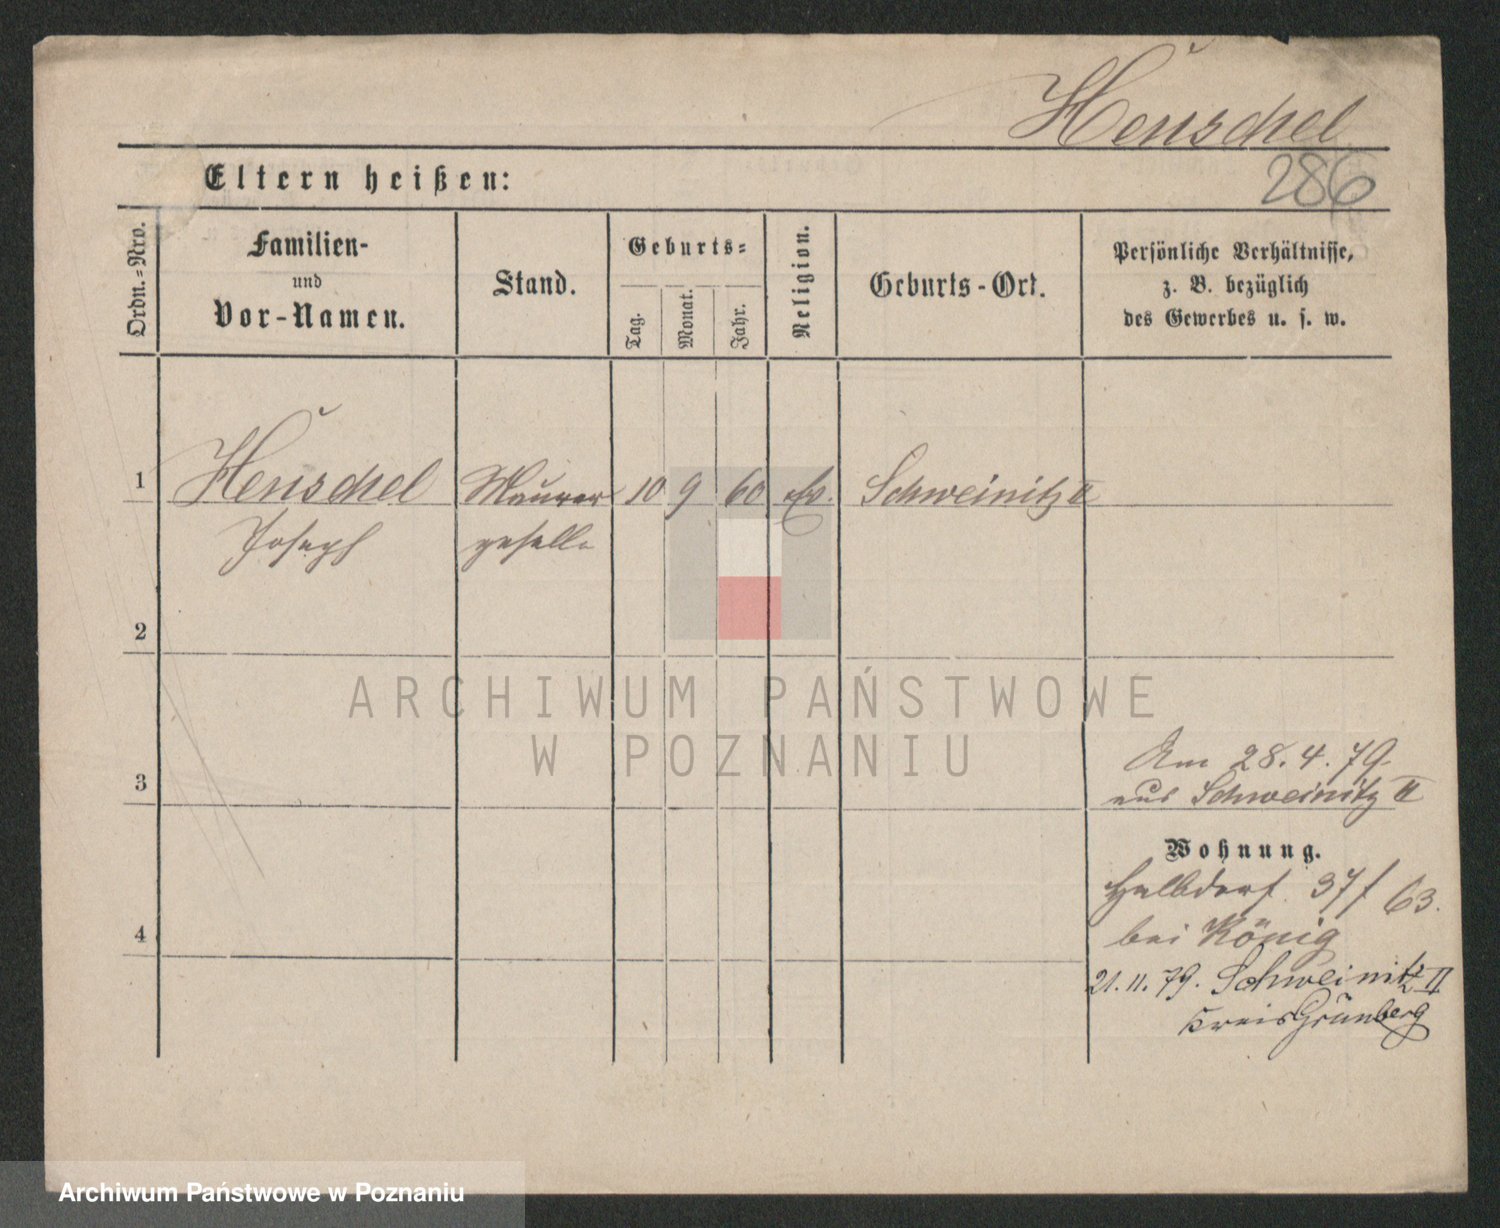 Henschel
286
Eltern heißen:
Ordn.=Nro.
Familien-
und
Vor-Namen.
Stand.
Geburts=
Tag.
Monat.
Jahr.
Religion.
Geburts-Ort.
Persönliche Verhältnisse,
z. B. bezüglich
des Gewerbes u. s. w.
1 Henschel Maurer 10 9 60 Ev. Schweinitz II
Joseph geselle
2
ARCHIWUM PAŃSTWOWE
W POZNANIU
Am 28.4.79
aus Schweinitz II
3
Wohnung.
Halbdorf 37/ 63.
bei König
4
21.11.79. Schweinitz II
Kreis Grünberg
Archiwum Państwowe w Poznaniu